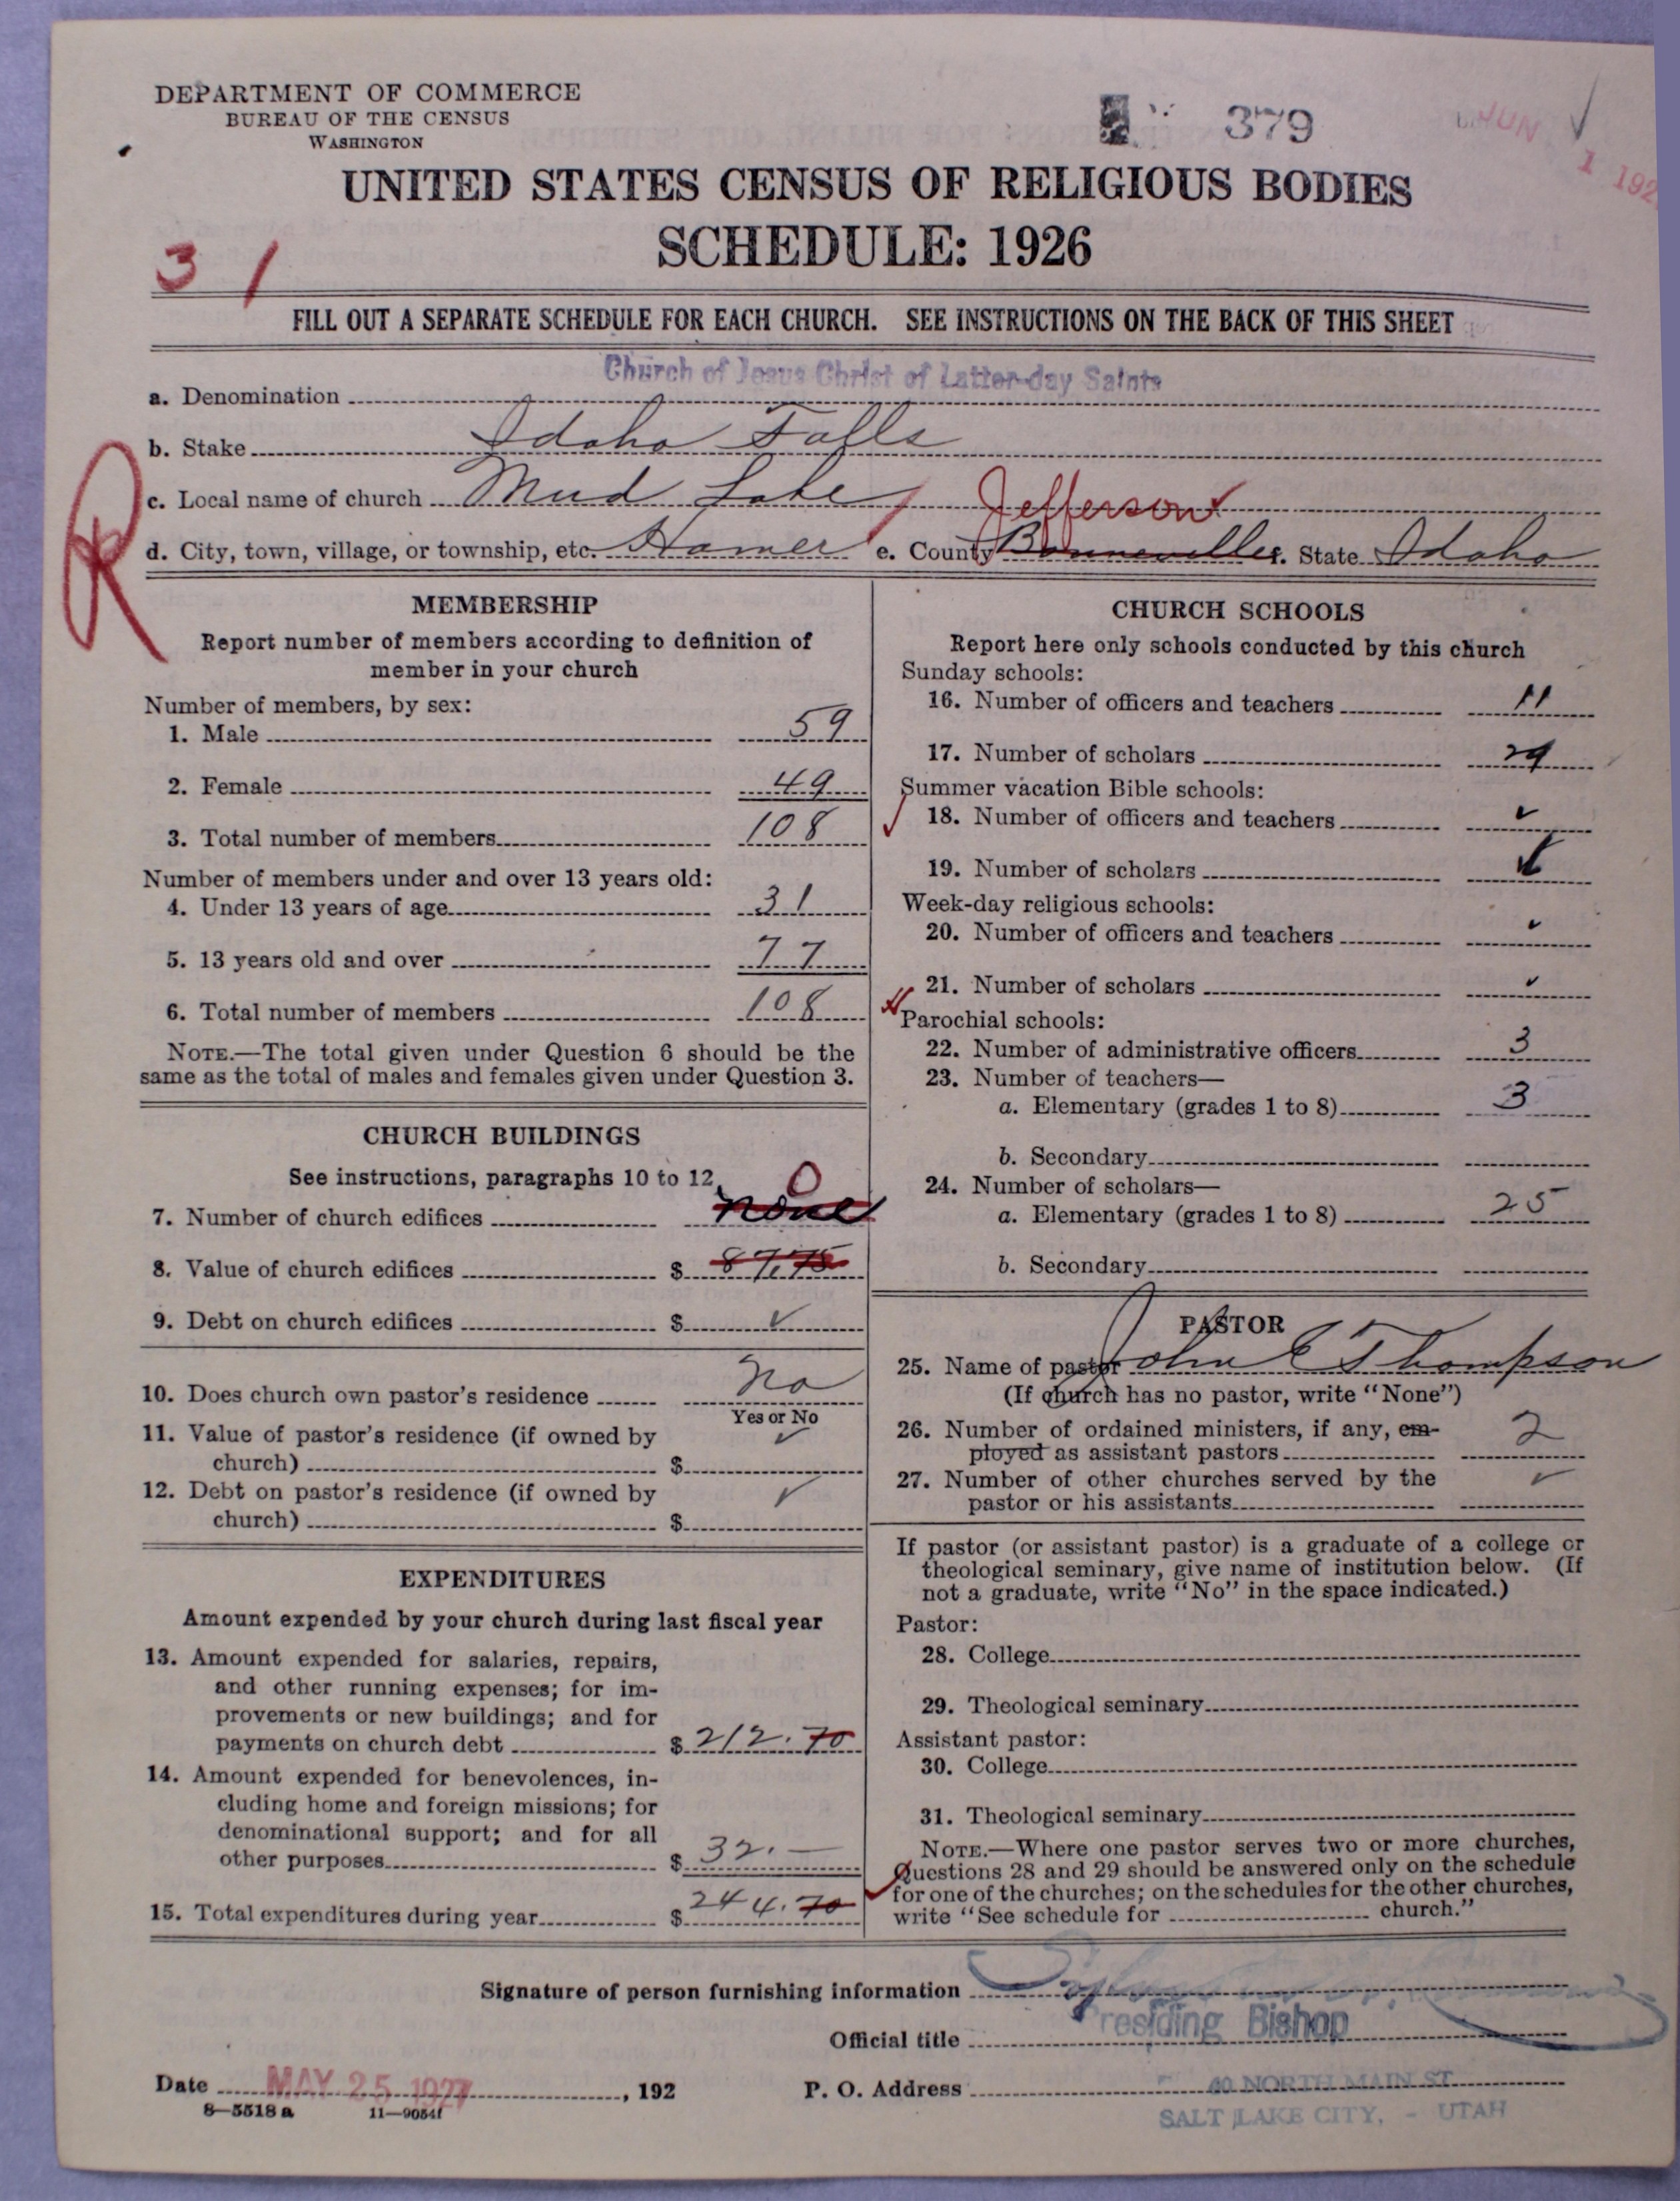 DEPARTMENT OF COMMERCE
BUREAU OF THE CENSUS
WASHINGTON
379
JUN 1 192
UNITED STATES CENSUS OF RELIGIOUS BODIES
SCHEDULE: 1926
3 1
FILL OUT A SEPARATE SCHEDULE FOR EACH CHURCH. SEE INSTRUCTIONS ON THE BACK OF THIS SHEET
Church of Jesus Christ of Latter-day Saints
a. Denomination
b. Stake Idaho Falls
R
c. Local name of church Mud Lake Jefferson
d. City, town, village, or township, etc. Hamer e. County Bonneville f. State Idaho
MEMBERSHIP
Report number of members according to definition of
member in your church
Number of members, by sex:
1. Male 59
2. Female 49
3. Total number of members 108
Number of members under and over 13 years old:
4. Under 13 years of age 31
5. 13 years old and over 77
6. Total number of members 108
NOTE.—The total given under Question 6 should be the
same as the total of males and females given under Question 3.
CHURCH BUILDINGS
See instructions, paragraphs 10 to 12
0
7. Number of church edifices none
8. Value of church edifices $ 87.75
9. Debt on church edifices $ ✓
10. Does church own pastor's residence No
Yes or No
11. Value of pastor's residence (if owned by ✓
church) $
12. Debt on pastor's residence (if owned by ✓
church) $
EXPENDITURES
Amount expended by your church during last fiscal year
13. Amount expended for salaries, repairs,
and other running expenses; for im-
provements or new buildings; and for
payments on church debt $ 212.70
14. Amount expended for benevolences, in-
cluding home and foreign missions; for
denominational support; and for all
other purposes $ 32.—
15. Total expenditures during year $ 244.70
CHURCH SCHOOLS
Report here only schools conducted by this church
Sunday schools:
16. Number of officers and teachers 11
17. Number of scholars 29
Summer vacation Bible schools:
18. Number of officers and teachers ✓
19. Number of scholars ✓
Week-day religious schools:
20. Number of officers and teachers ✓
21. Number of scholars ✓
Parochial schools:
22. Number of administrative officers 3
23. Number of teachers—
a. Elementary (grades 1 to 8) 3
b. Secondary
24. Number of scholars—
a. Elementary (grades 1 to 8) 25
b. Secondary
PASTOR
25. Name of pastor John E Thompson
(If church has no pastor, write "None")
26. Number of ordained ministers, if any, em-
ployed as assistant pastors 2
27. Number of other churches served by the ✓
pastor or his assistants
If pastor (or assistant pastor) is a graduate of a college or
theological seminary, give name of institution below. (If
not a graduate, write "No" in the space indicated.)
Pastor:
28. College
29. Theological seminary
Assistant pastor:
30. College
31. Theological seminary
NOTE.—Where one pastor serves two or more churches,
Questions 28 and 29 should be answered only on the schedule
for one of the churches; on the schedules for the other churches,
write "See schedule for church."
Signature of person furnishing information
Official title Presiding Bishop
Date MAY 25 1927, 192 P. O. Address 40 NORTH MAIN ST.
8—5518 a 11—9054f SALT LAKE CITY, - UTAH